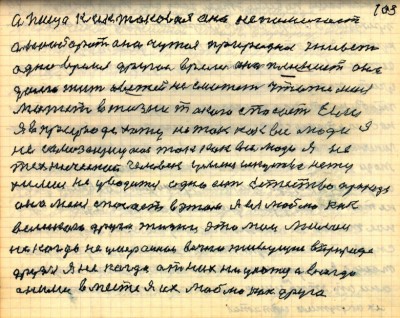 103
а пища как таковая она не помогает
а наоборот она чужая природная живет
одно время другое время она
долго жить человек не сможет что же мне
может в жизни такого спасет Если
Я в природе хожу не так как все люди Я
не самозащищаю так как все люди Я не
технический человек у меня искуства нету
химии не увожу одно есть Естество природа
она меня спасает в этом Я ея люблю как
великого друга жизни это мои милыи
никогда не умирающие вечно живущие в природе
друзья Я никогда от них ни ухожу а всегда
с ними вместе Я их люблю как друга